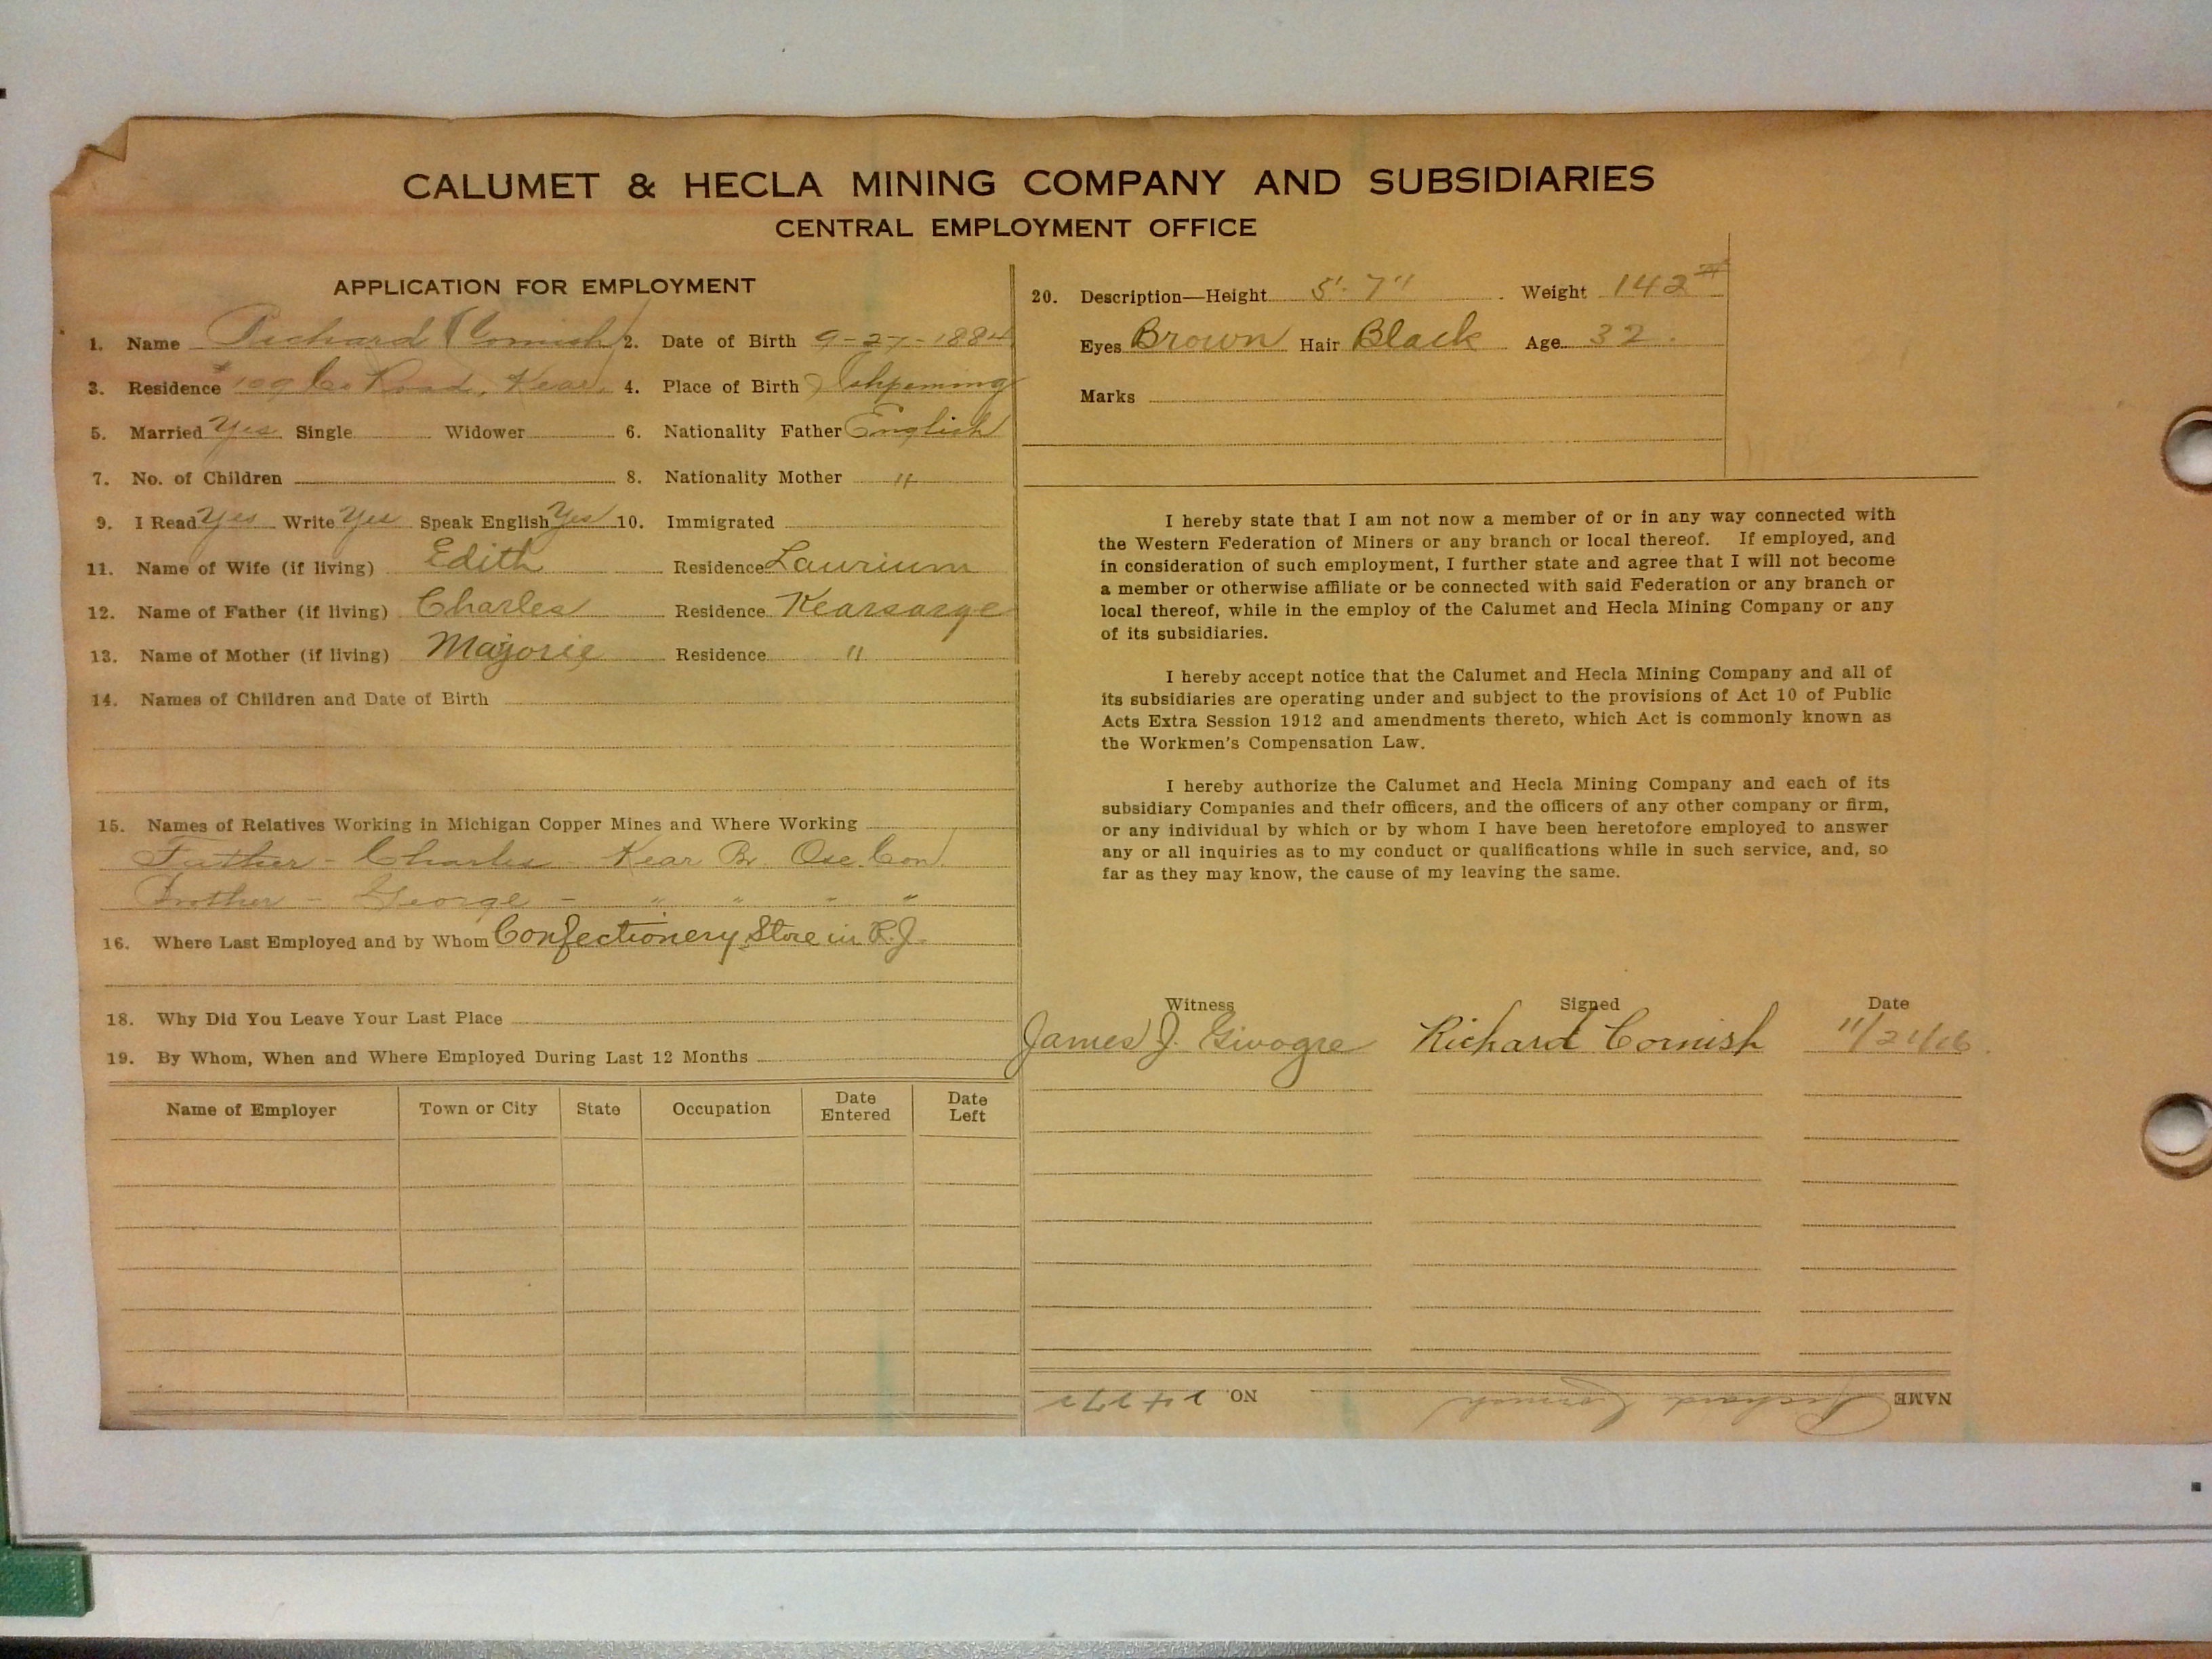 CALUMET & HECLA MINING COMPANY AND SUBSIDIARIES
CENTRAL EMPLOYMENT OFFICE
APPLICATION FOR EMPLOYMENT
1. Name Richard Cornish 2. Date of Birth 9-27-1884
3. Residence Road, Kear. 4. Place of Birth Ishpeming
5. Married Yes Single Widower 6. Nationality Father English
7. No. of Children 8. Nationality Mother "
9. I Read Yes Write Yes Speak English Yes 10. Immigrated
11. Name of Wife (if living) Edith Residence Laurium
12. Name of Father (if living) Charles Residence Kearsarge
13. Name of Mother (if living) Majorie Residence "
14. Names of Children and Date of Birth
15. Names of Relatives Working in Michigan Copper Mines and Where Working
Father - Charles - Kear Br. Osc. Con.
Brother - George - " " " "
16. Where Last Employed and by Whom Confectionery Store in R.J.
18. Why Did You Leave Your Last Place
19. By Whom, When and Where Employed During Last 12 Months
Name of Employer Town or City State Occupation Date Entered Date Left
20. Description—Height 5' 7" Weight 142#
Eyes Brown Hair Black Age 32
Marks
I hereby state that I am not now a member of or in any way connected with
the Western Federation of Miners or any branch or local thereof. If employed, and
in consideration of such employment, I further state and agree that I will not become
a member or otherwise affiliate or be connected with said Federation or any branch or
local thereof, while in the employ of the Calumet and Hecla Mining Company or any
of its subsidiaries.
I hereby accept notice that the Calumet and Hecla Mining Company and all of
its subsidiaries are operating under and subject to the provisions of Act 10 of Public
Acts Extra Session 1912 and amendments thereto, which Act is commonly known as
the Workmen's Compensation Law.
I hereby authorize the Calumet and Hecla Mining Company and each of its
subsidiary Companies and their officers, and the officers of any other company or firm,
or any individual by which or by whom I have been heretofore employed to answer
any or all inquiries as to my conduct or qualifications while in such service, and, so
far as they may know, the cause of my leaving the same.
Witness Signed Date
James J. Givogre Richard Cornish 11/21/16
NAME Richard Cornish NO.